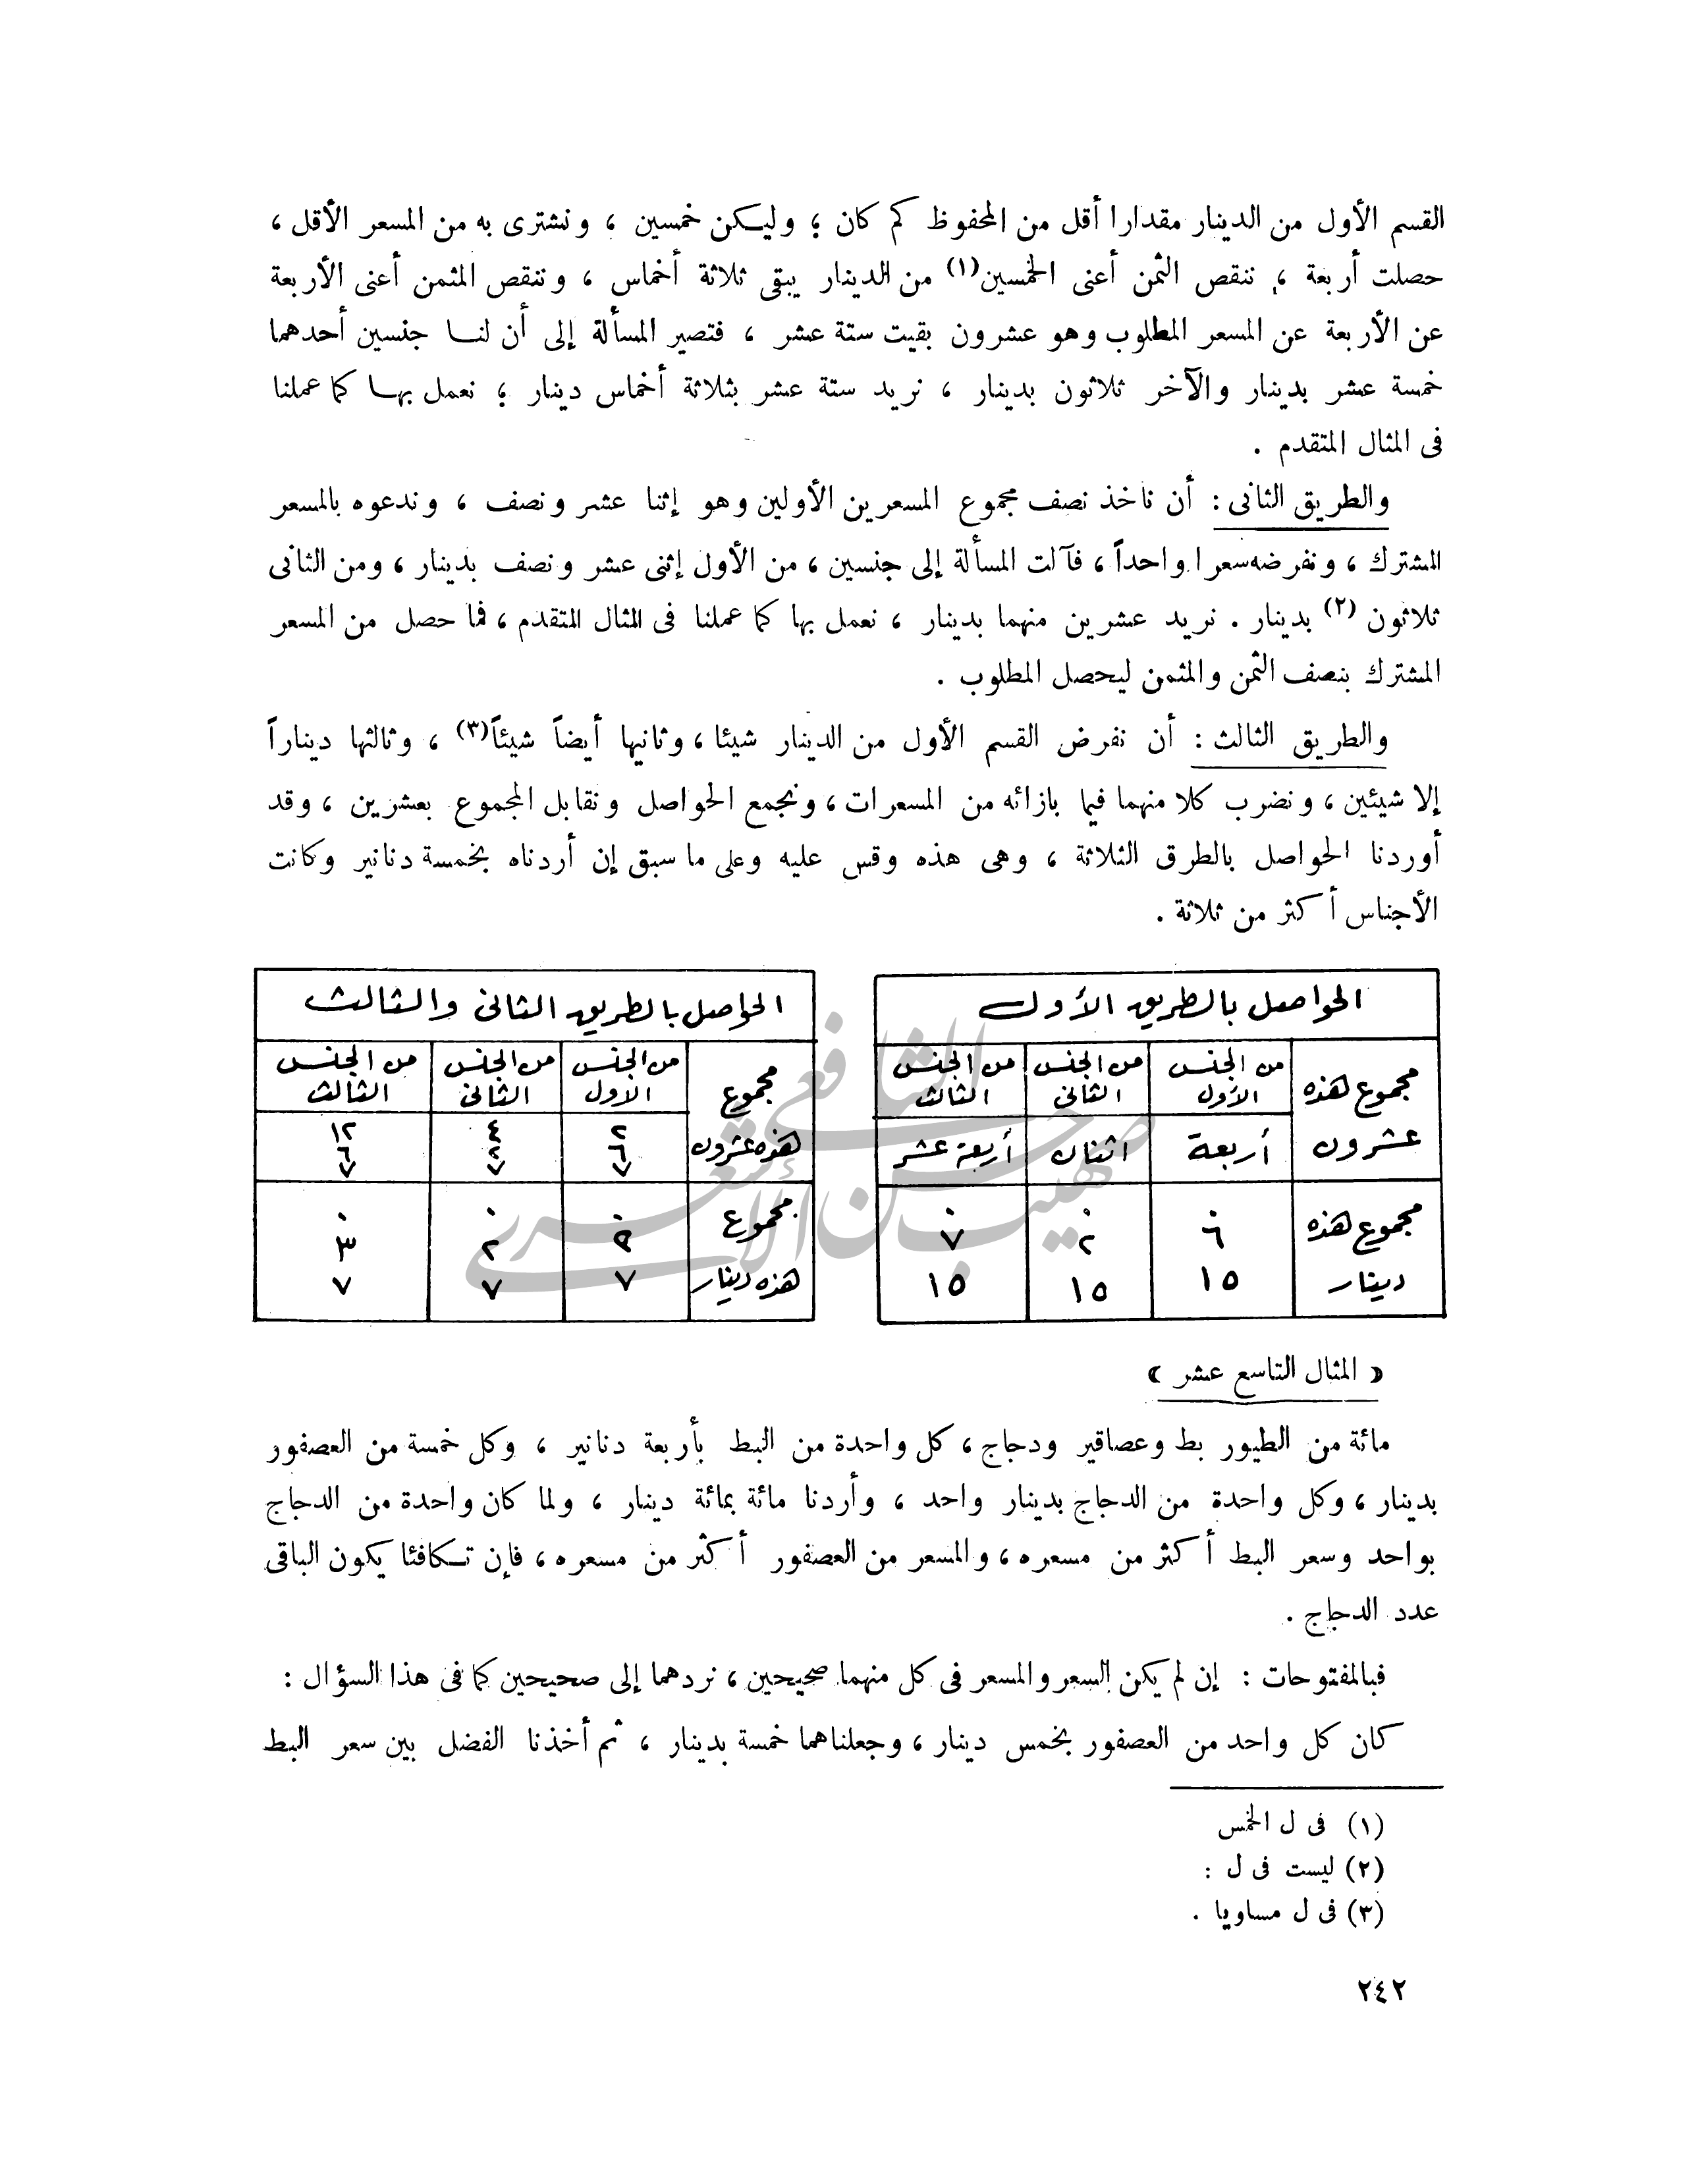 القسم الأول من الدينار مقدارا أقل من المحفوظ كم كان ؛ وليكن خمسين ، ونشترى به من المسعر الأقل ،
حصلت أربعة ، ننقص الثمن أعنى الخمسين(١) من الدينار يبقى ثلاثة أخماس ، وننقص المثمن أعنى الأربعة
عن الأربعة عن المسعر المطلوب وهو عشرون بقيت ستة عشر ، فتصير المسألة إلى أن لنا جنسين أحدهما
خمسة عشر بدينار والآخر ثلاثون بدينار ، نريد ستة عشر بثلاثة أخماس دينار ؛ نعمل بها كما عملنا
فى المثال المتقدم .
والطريق الثانى : أن ناخذ نصف مجموع المسعرين الأولين وهو إثنا عشر ونصف ، وندعوه بالمسعر
المشترك ، ونفرضه سعرا واحداً ، فآلت المسألة إلى جنسين ، من الأول إثنى عشر ونصف بدينار ، ومن الثانى
ثلاثون (٢) بدينار . نريد عشرين منهما بدينار ، نعمل بها كما عملنا فى المثال المتقدم ، فما حصل من المسعر
المشترك بنصف الثمن والمثمن ليحصل المطلوب .
والطريق الثالث : أن نفرض القسم الأول من الدينار شيئا ، وثانيها أيضاً شيئاً(٣) ، وثالثها ديناراً
إلا شيئين ، ونضرب كلا منهما فيما بازائه من المسعرات ، ونجمع الحواصل ونقابل المجموع بعشرين ، وقد
أوردنا الحواصل بالطرق الثلاثة ، وهى هذه وقس عليه وعلى ما سبق إن أردناه بخمسة دنانير وكانت
الأجناس أكثر من ثلاثة .
الحواصل بالطريق الأول
مجموع هذه عشرون
من الجنس الأول
من الجنس الثانى
من الجنس الثالث
أربعة
اثنان
أربعة عشر
مجموع هذه دينار
٠ ٦ ١٥
٠ ٢ ١٥
٠ ٧ ١٥
الحواصل بالطريق الثانى والثالث
مجموع هذه عشرون
من الجنس الاول
من الجنس الثانى
من الجنس الثالث
٢ ٦ ٧
٤ ٢ ٧
١٢ ٦ ٧
مجموع هذه دينار
٠ ٢ ٧
٠ ٢ ٧
٠ ٣ ٧
صهيب حسن الشافعي الأشعري
( المثال التاسع عشر )
مائة من الطيور بط وعصاقير ودجاج ، كل واحدة من البط بأربعة دنانير ، وكل خمسة من العصفور
بدينار ، وكل واحدة من الدجاج بدينار واحد ، وأردنا مائة بمائة دينار ، ولما كان واحدة من الدجاج
بواحد وسعر البط أكثر من مسعره ، والمسعر من العصفور أكثر من مسعره ، فإن تكافئا يكون الباقى
عدد الدجاج .
فبالمفتوحات : إن لم يكن السعر والمسعر فى كل منهما صحيحين ، نردهما إلى صحيحين كما فى هذا السؤال :
كان كل واحد من العصفور بخمس دينار ، وجعلناهما خمسة بدينار ، ثم أخذنا الفضل بين سعر البط
(١) فى ل الخمس
(٢) ليست فى ل :
(٣) فى ل مساويا .
٢٤٢